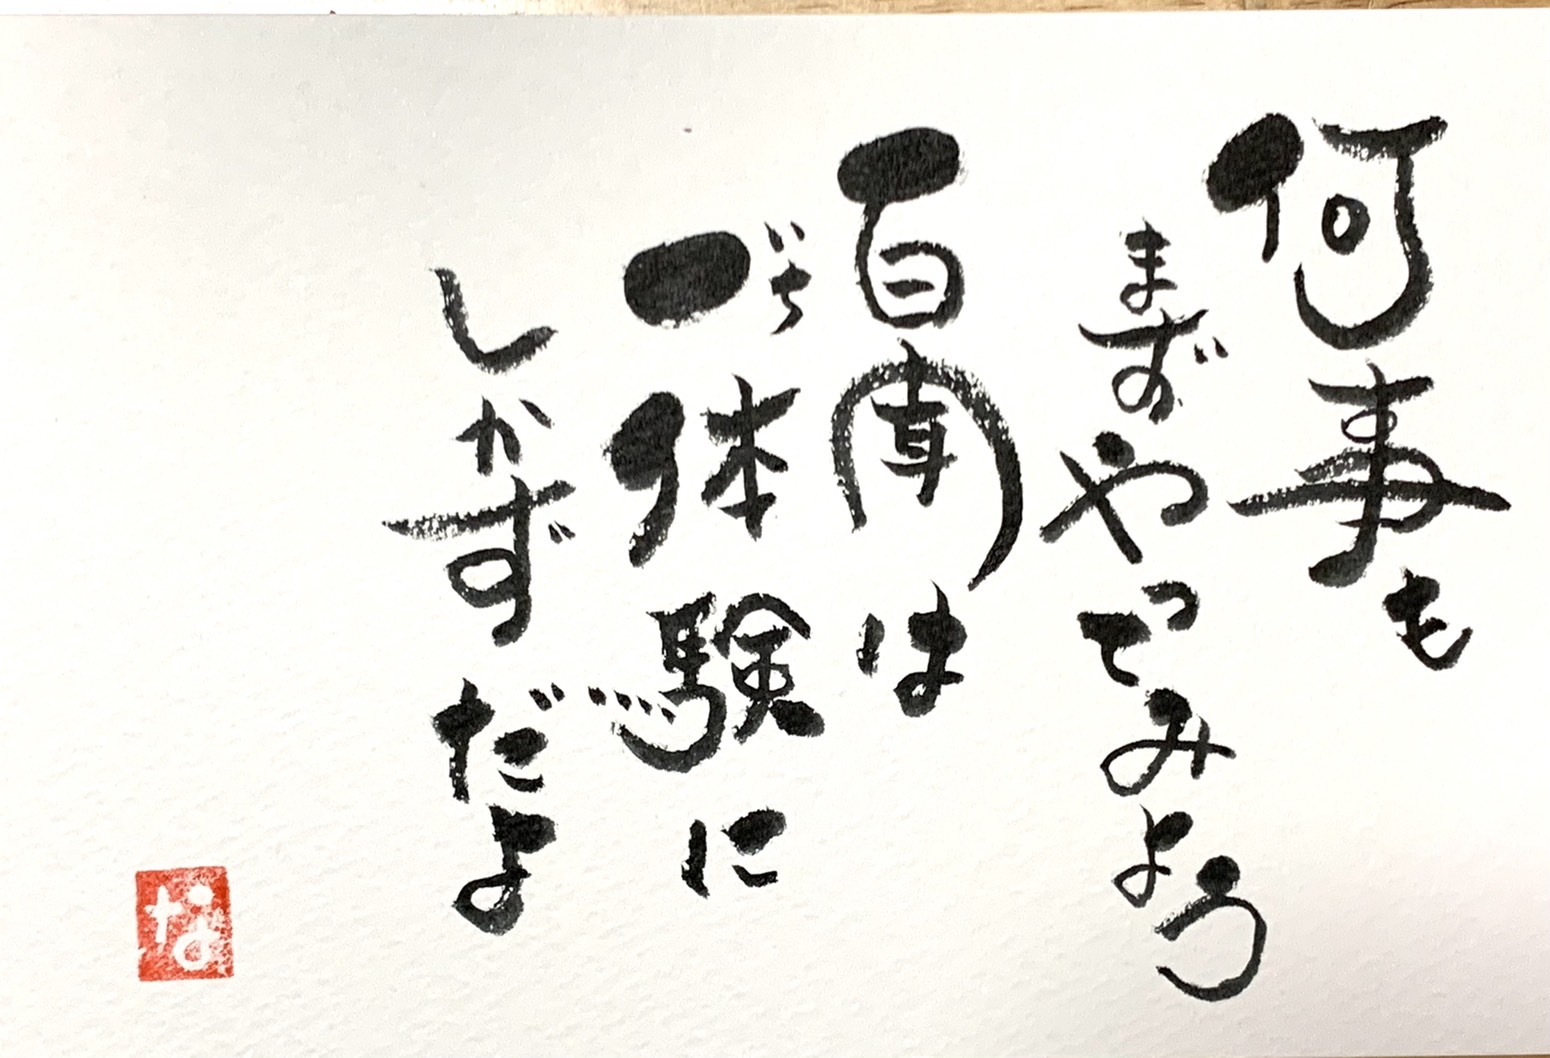 何事も
まずやってみよう
百聞は
一体験に
いち
しかずだよ
な